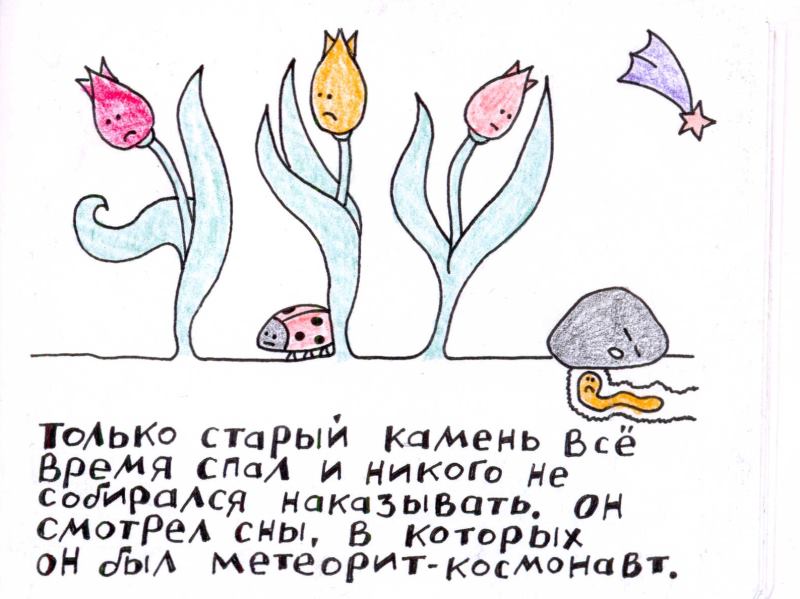 Только старый камень всё
время спал и никого не
собирался наказывать. Он
смотрел сны, в которых
он был метеорит-космонавт.